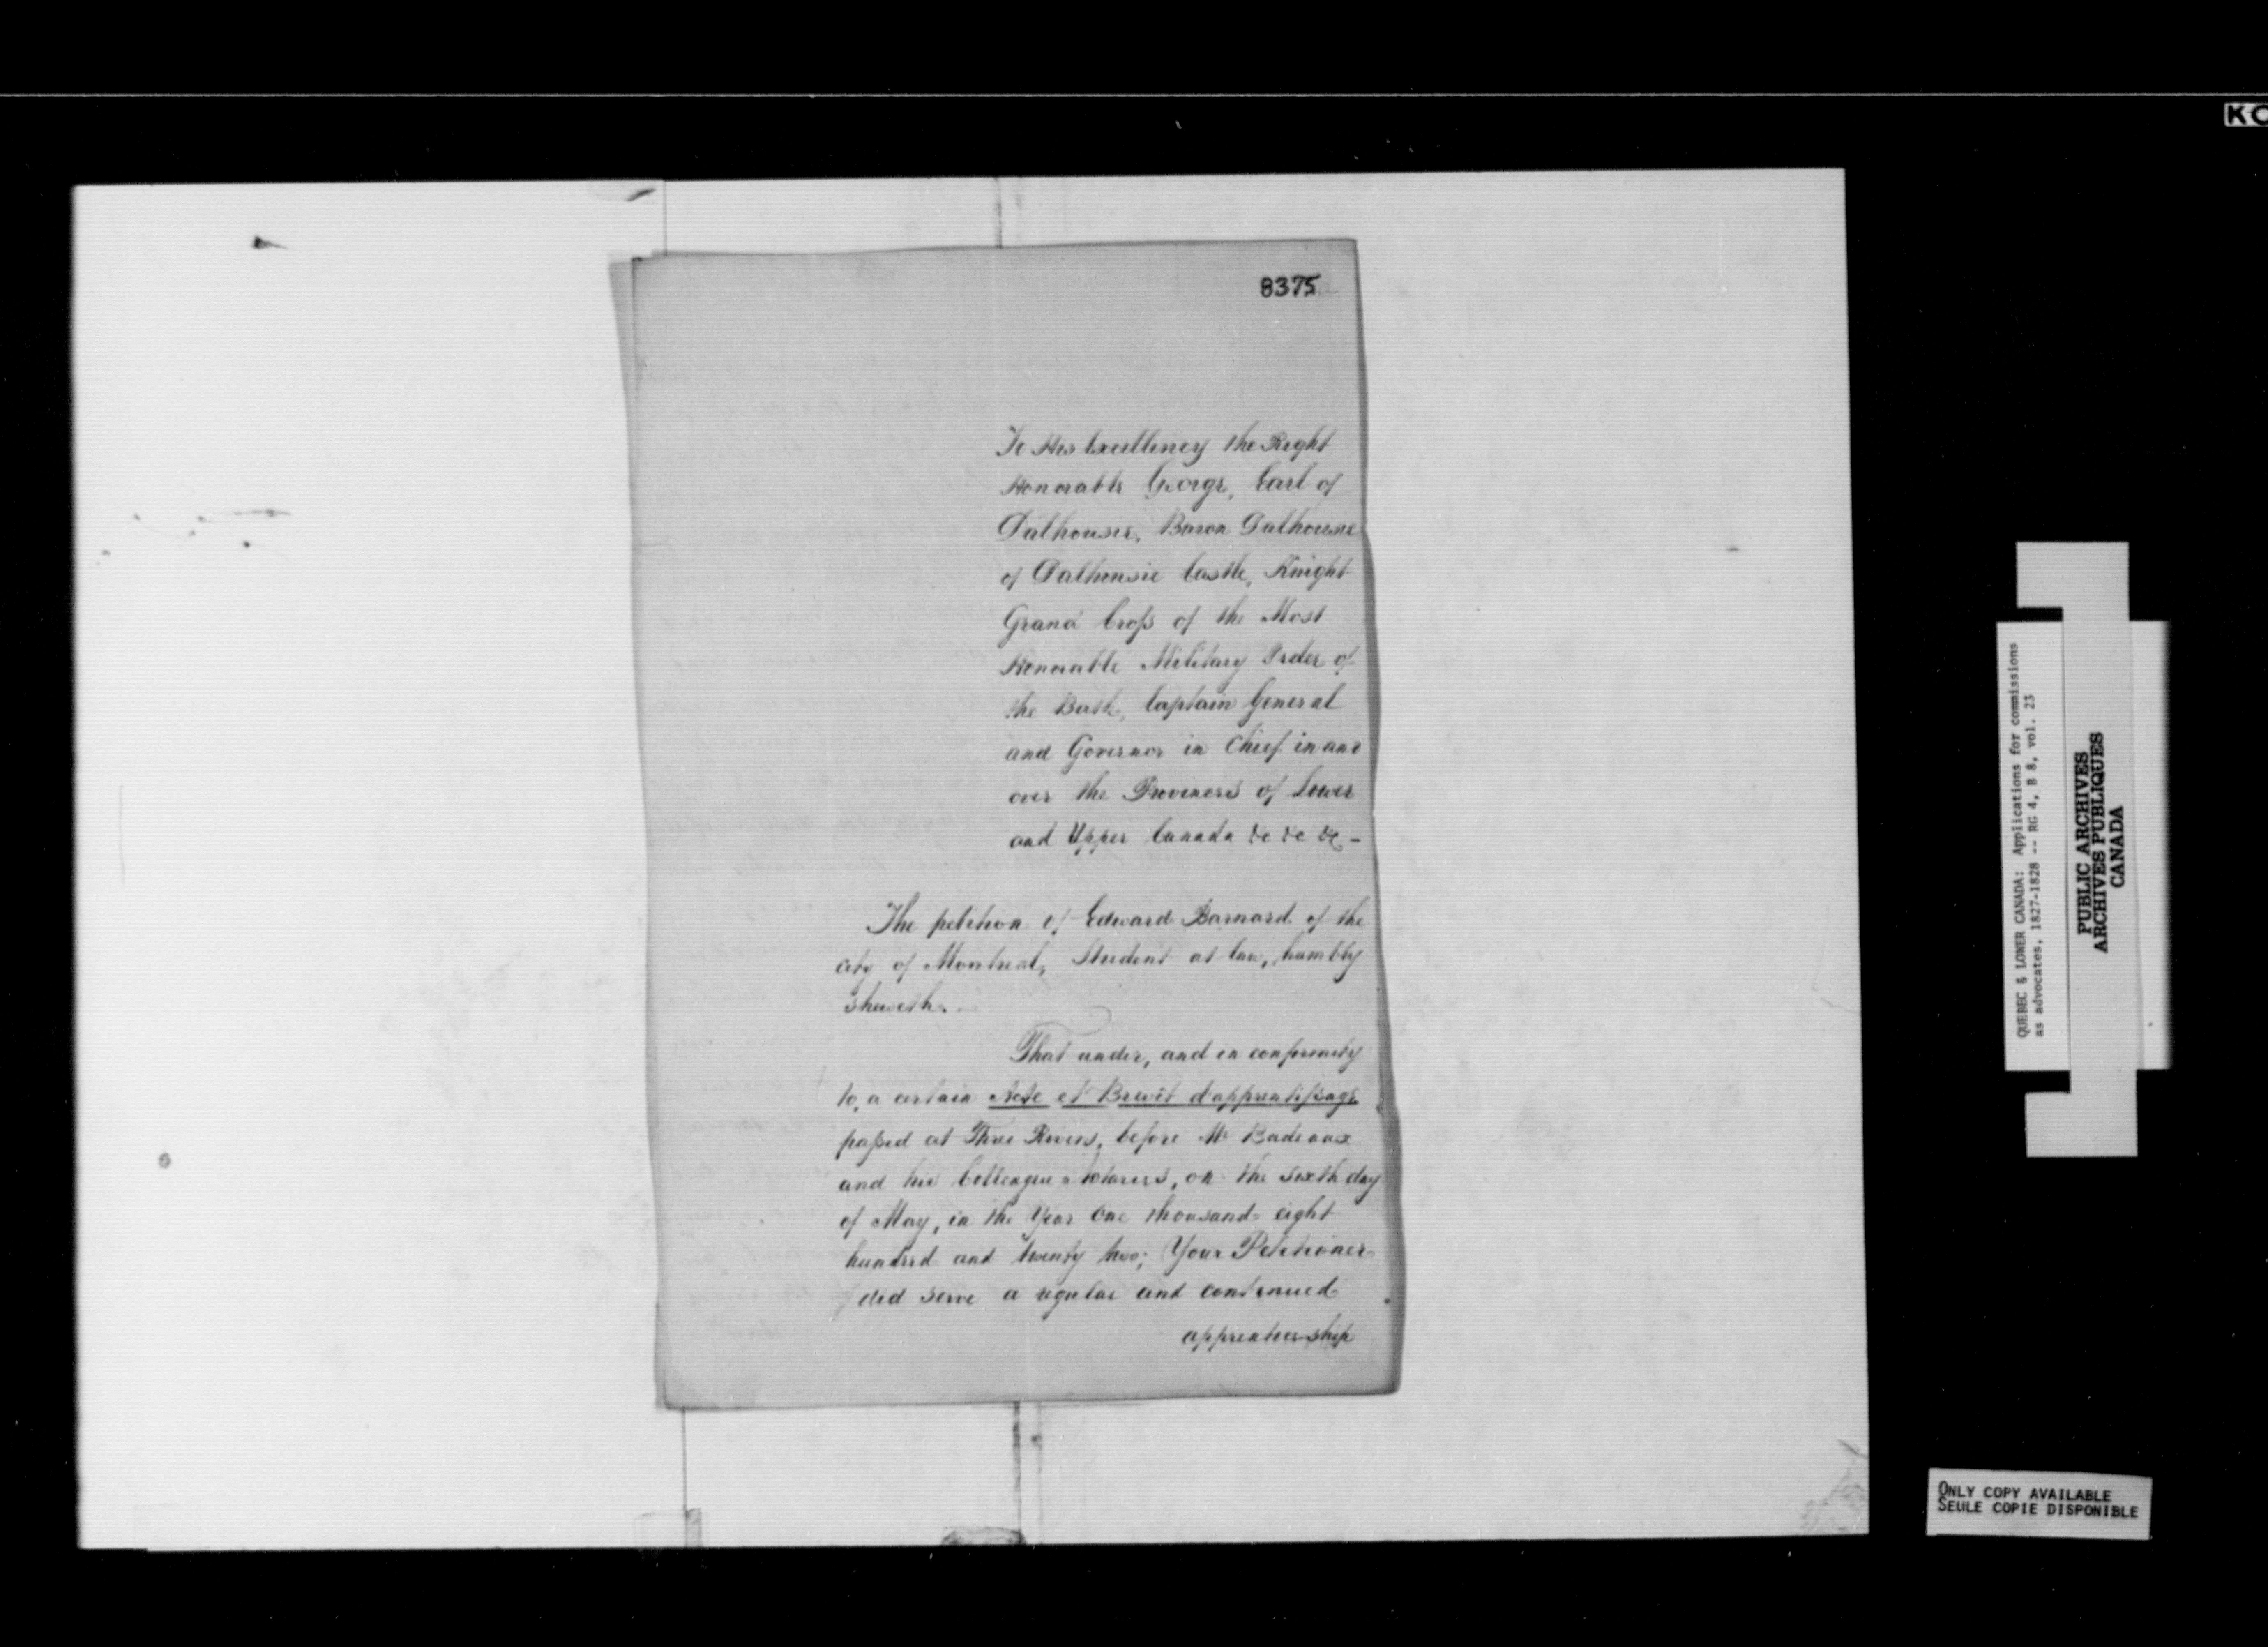 8375
To His Excellency the Right
Honorable George, Earl of
Dalhousie, Baron Dalhousie
of Dalhousie Castle, Knight
Grand Cross of the Most
Honorable Military Order of
the Bath, Captain General
and Governor in Chief in and
over the Provinces of Lower
and Upper Canada &c &c &c -
The petition of Edward Barnard of the
city of Montreal, Student at law, humbly
sheweth. -
That under, and in conformity
to, a certain Acte et Brevêt d'apprentissage
passed at Three Rivers, before Mr Badeaux
and his Colleague Notaries, on the sixth day
of May, in the Year One thousand eight
hundred and twenty two; Your Petitioner
did serve a regular and continued
apprenticeship
QUEBEC & LOWER CANADA: Applications for commissions
as advocates, 1827-1828 -- RG 4, B 8, vol. 23
PUBLIC ARCHIVES
ARCHIVES PUBLIQUES
CANADA
ONLY COPY AVAILABLE
SEULE COPIE DISPONIBLE